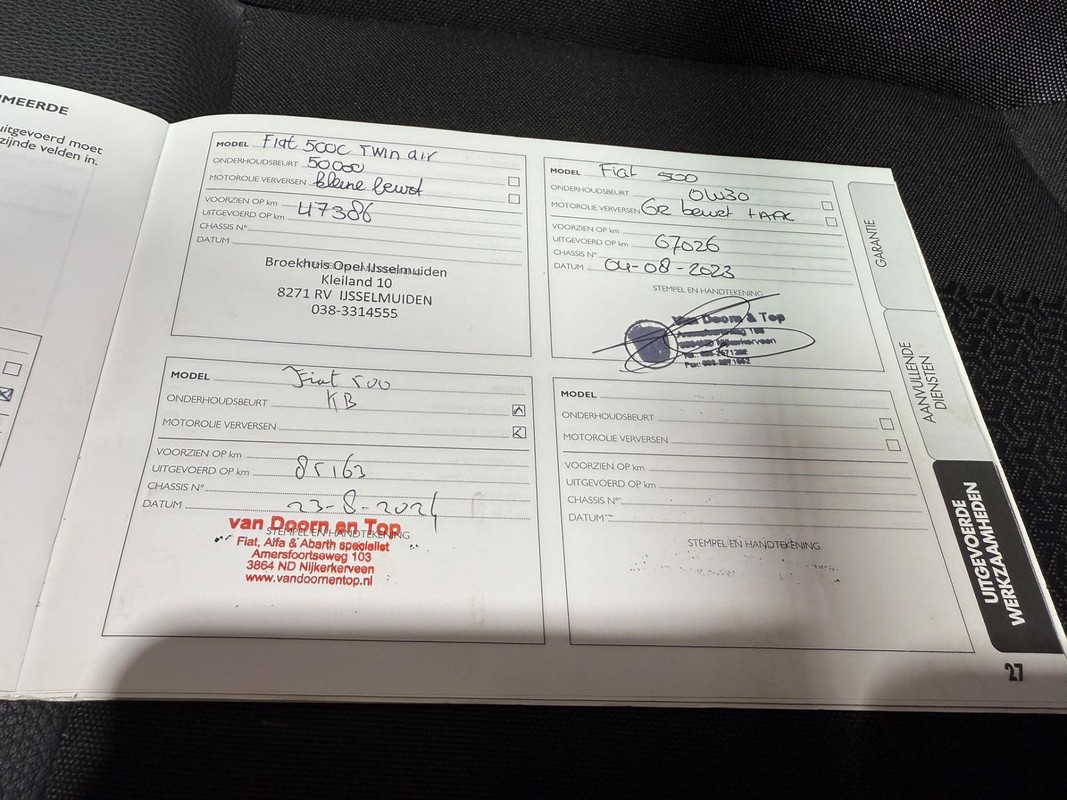 MEERDE
uitgevoerd moet
zijnde velden in.
MODEL Fiat 500C TWin air
ONDERHOUDSBEURT 50000
MOTOROLIE VERVERSEN kleine beurt
VOORZIEN OP km
UITGEVOERD OP km 47386
CHASSIS N°
DATUM
Broekhuis Opel IJsselmuiden
Kleiland 10
8271 RV IJSSELMUIDEN
038-3314555
MODEL Fiat 500
ONDERHOUDSBEURT 0W30
MOTOROLIE VERVERSEN GR beurt + APK
VOORZIEN OP km
UITGEVOERD OP km 67026
CHASSIS N°
DATUM 04-08-2023
STEMPEL EN HANDTEKENING
Van Doorn & Top
Nijkerkerveen
MODEL Fiat 500
ONDERHOUDSBEURT KB
MOTOROLIE VERVERSEN
VOORZIEN OP km
UITGEVOERD OP km 85163
CHASSIS N°
DATUM 23-8-2024
van Doorn en Top
STEMPEL EN HANDTEKENING
Fiat, Alfa & Abarth specialist
Amersfoortseweg 103
3864 ND Nijkerkerveen
www.vandoornentop.nl
MODEL
ONDERHOUDSBEURT
MOTOROLIE VERVERSEN
VOORZIEN OP km
UITGEVOERD OP km
CHASSIS N°
DATUM
STEMPEL EN HANDTEKENING
GARANTIE
AANVULLENDE
DIENSTEN
UITGEVOERDE
WERKZAAMHEDEN
27